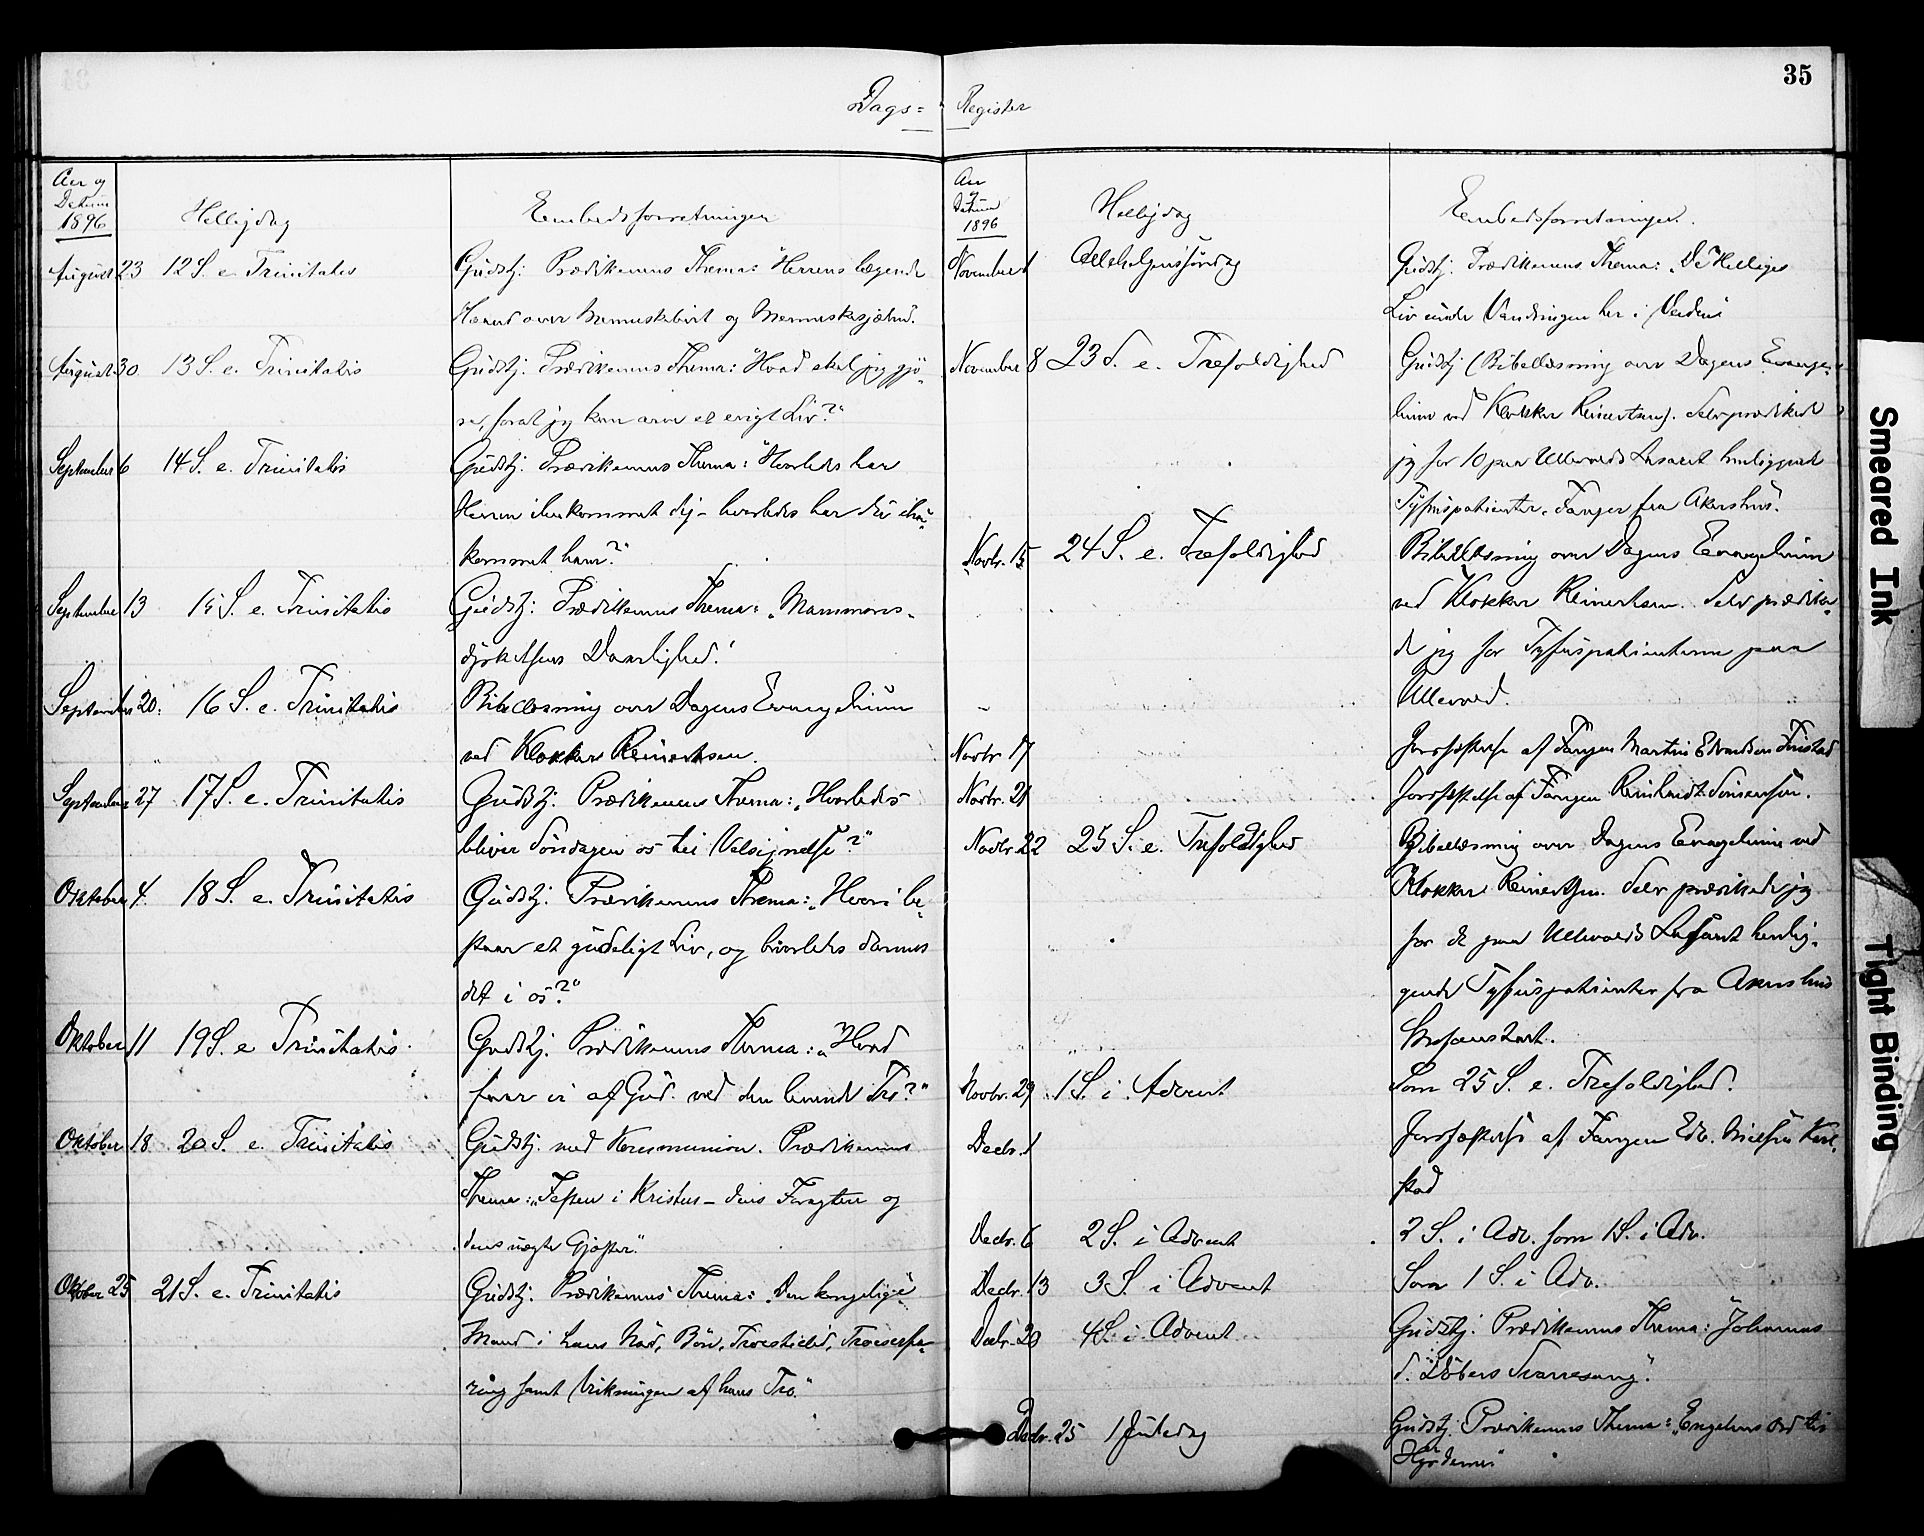 35
Dags= Register
Aar og
Datum
1896
Helligdag
Embedsforretninger
August 23 12 S. e. Trinitatis Gudstj: Prædikenens Thema: "Herrens lægende
Haand over Menneskelivet og Menneskesjælen".
August 30 13 S. e. Trinitatis Gudstj: Prædikenens Thema: "Hvad skal jeg gjö-
re, forat jeg kan arve et evigt Liv?"
September 6 14 S. e. Trinitatis Gudstj: Prædikenens Thema: "Hvorledes har
Herren ihukommet dig - hvorledes har du ihu-
kommet ham?"
September 13 15 S. e. Trinitatis Gudstj: Prædikenens Thema: „Mammons-
dyrkelsens Daarlighed."
September 20. 16 S. e. Trinitatis Bibellæsning over Dagens Evangelium
ved Klokker Reinertsen.
September 27 17 S. e. Trinitatis Gudstj: Prædikenens Thema: „Hvorledes
bliver Söndagen os til Velsignelse?"
Oktober 4. 18 S. e. Trinitatis Gudstj: Prædikenens Thema: „Hvori be-
staar et gudeligt Liv, og hvorledes dannes
det i os?"
Oktober 11 19 S. e Trinitatis. Gudstj: Prædikenens Thema: „Hvad
faar vi af Gud ved den levende Tro?"
Oktober 18 20 S. e. Trinitatis Gudstj. med Kommunion. Prædikenens
Thema: „Festen i Kristus - dens Foragtere og
dens rægte Gjæster."
Oktober 25 21 S. e. Trinitatis Gudstj: Prædikenens Thema: „Den kongelige
Mand i hans Nød, Bön, Troestilid, Troeserfa-
ring samt Virkningen af hans Tro."
Aar
og
Datum
1896
Helligdag
Embedsforretninger.
November 1 Allehelgenssöndag Gudstj: Prædikenens Thema: „De Helliges
Liv under Vandringen her i Verden"
November 8 23 S. e. Trefoldighed Gudstj (Bibellæsning over Dagens Evange-
lium ved Klokker Reinertsen). Selv prædikede
jeg for 10 paa Ullevolds Lasaret henliggende
Tyfuspatienter, Fanger fra Akershus.
Novbr. 15 24 S. e. Trefoldighed Bibellæsning over Dagens Evangelium
ved Klokker Reinertsen. Selv prædike-
de jeg for Tyfuspatienterne paa
Ullevold.
Novbr 17 Jordfæstelse af Fangen Martin Edvardsen Finstad
Novbr. 21 Jordfæstelse af Fangen Reinhardt Simensen.
Novbr. 22 25 S. e. Trefoldighed Bibellæsning over Dagens Evangelium ved
Klokker Reinertsen. Selv prædikede jeg
for de paa Ullevolds Lasaret henlig-
gende Tyfuspatienter fra Akershus
Strafanstalt.
Novbr. 29 1 S. i Advent Som 25 S. e. Trefoldighed.
Decbr. 1 Jordfæstelse af Fangen Edv. Nielsen Karl-
stad
Decbr. 6 2 S. i Advent 2 S. i Adv. som 1 S. i Adv.
Decbr. 13 3 S. i Advent Som 1 S. i Adv.
Decbr. 20 4 S. i Advent Gudstj: Prædikenens Thema: "Johannes
d. Döbers Svanesang".
Decbr. 25 1 Juledag Gudstj. Prædikenens Thema: „Engelens Ord til
Hyrderne"
Smeared Ink
Tight Binding